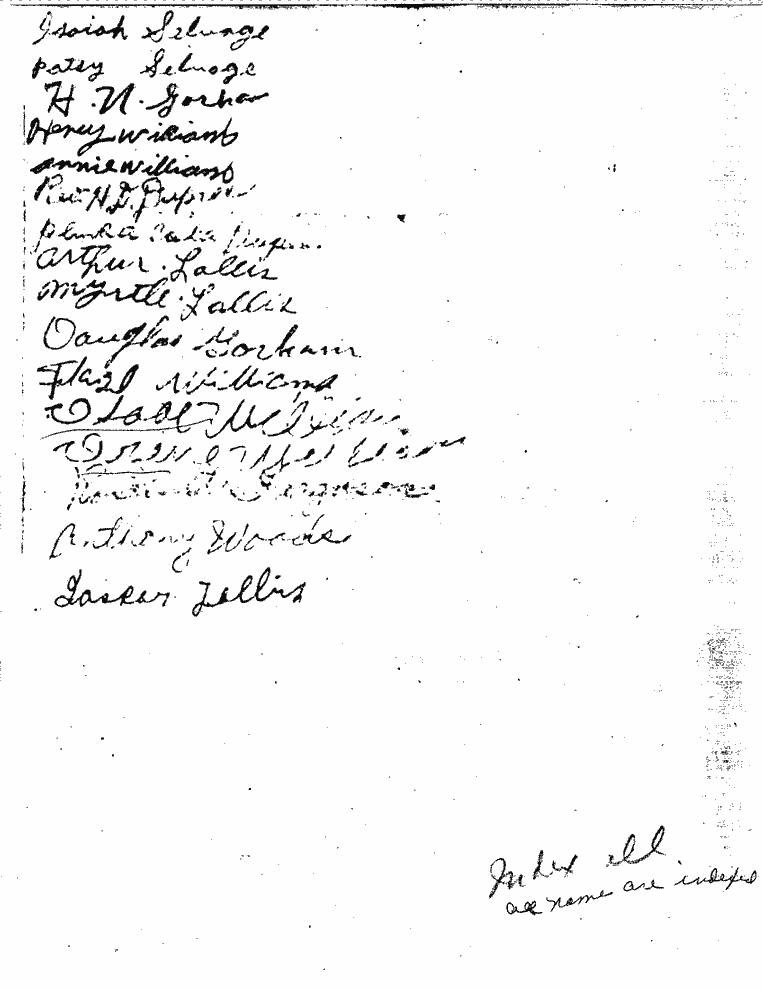 Isaiah Selvage
Patsy Selvage
H. N. Gorham
Henry Williams
Annie Williams
Rev H. D. Dupree
Arthur Lollis
Myrtle Lollis
Douglas Gorham
Hazel Williams
Ferguson
Anthony Woods
Lollis
Index all
all name are indexed